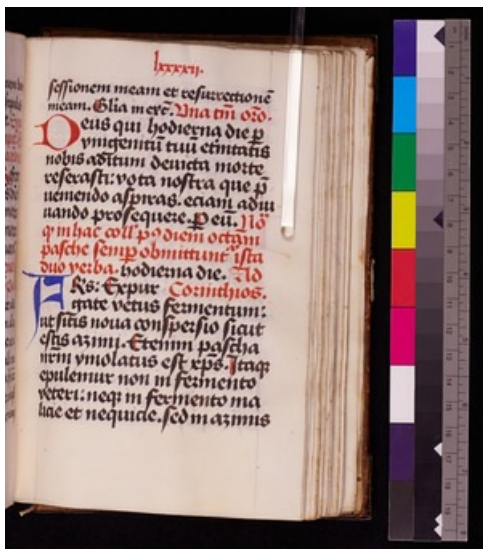 lxxxxii.
sessionem meam et resurrectionē
meam. Glia in exc̄. Una tm̄ oro.
Deus qui hodierna die p̲
vnigenitū tuū et̄nitatis
nobis aditum deuicta morte
reserasti: vota nostra que p̄
ueniendo aspiras. eciam adiu
uando prosequere. P̲ eū. No
hac coll̄ diem octāu
pasche semp̲ obmittunt̄ ista
duo verba. hodierna die. Ad
FRēs: Expur Corinthios.
gate vetus fermentum:
ut sitis noua conspersio sicut
estis azimi. Etenim pascha
nrm ymolatus est xp̄s. Itaq
epulemur non in fermento
veteri: neq in fermento ma
licie et nequicie. sed in azimis